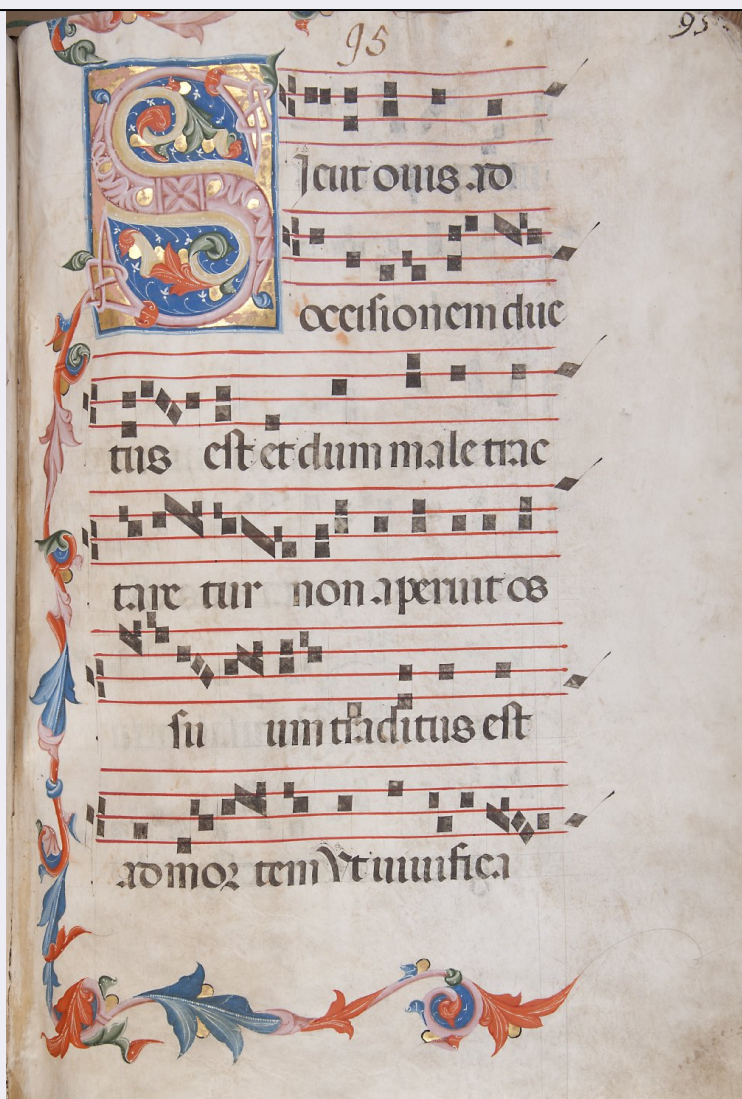 95
95
Sicut ovis ad
occisionem duc
tus est et dum male trac
tare tur non aperuit os
su um traditus est
ad mor tem Vt vivifica